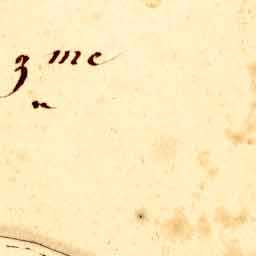 3 me
n